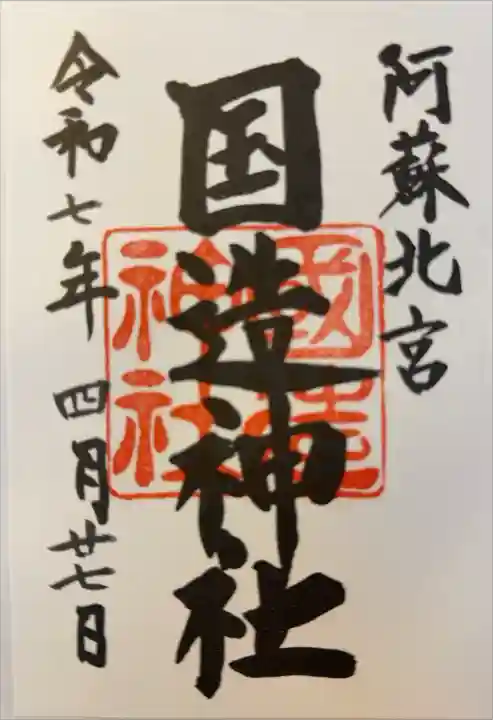 阿蘇北宮
国造神社
國造神社
令和七年 四月廿七日